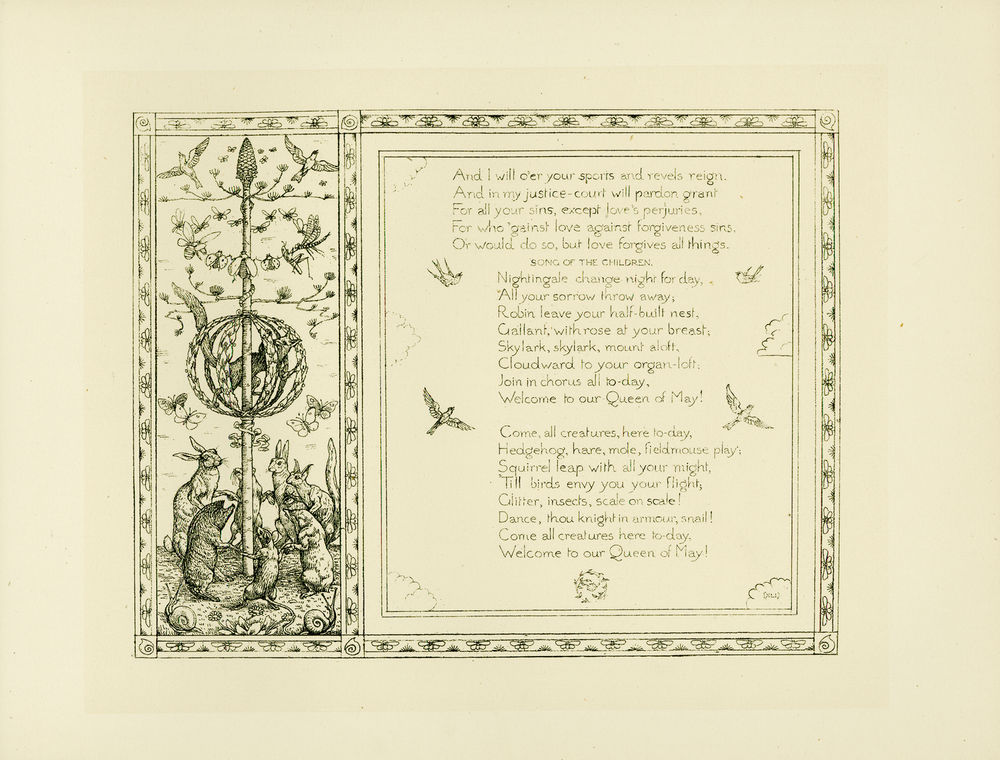 And I will o'er your sports and revels reign.
And in my justice-court will pardon grant
For all your sins, except love's perjuries,
For who 'gainst love against forgiveness sins,
Or would do so, but love forgives all things.
SONG OF THE CHILDREN.
Nightingale change night for day,
All your sorrow throw away;
Robin leave your half-built nest,
Gallant, with rose at your breast;
Skylark, skylark, mount aloft,
Cloudward to your organ-loft;
Join in chorus all to-day,
Welcome to our Queen of May!
Come, all creatures, here to-day,
Hedgehog, hare, mole, fieldmouse play;
Squirrel leap with all your might,
'Till birds envy you your flight;
Glitter, insects, scale on scale!
Dance, thou knight in armour, snail!
Come all creatures here to-day.
Welcome to our Queen of May!